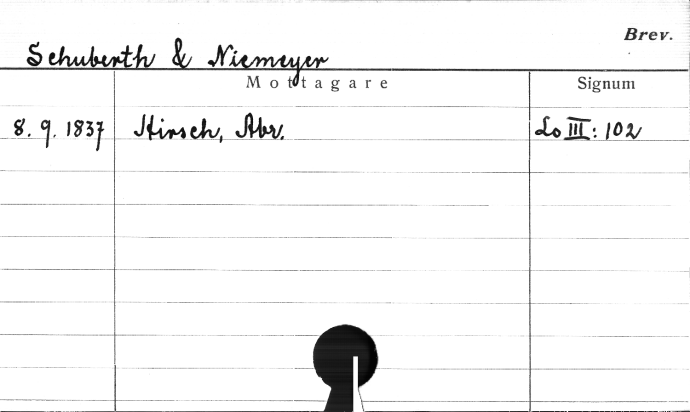 Brev.
Schuberth & Niemeyer
Mottagare Signum
8. 9. 1837 Hirsch, Abr. Lo III: 102